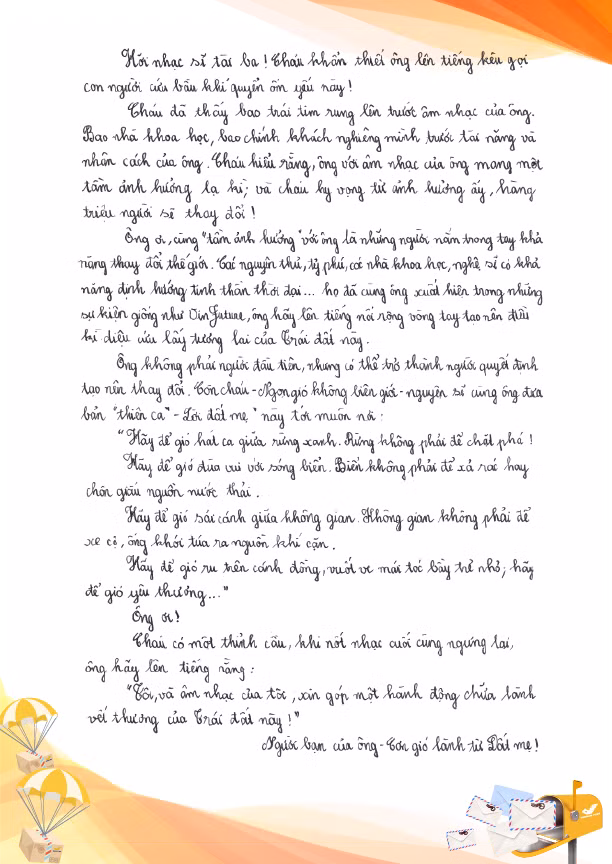 Hỡi nhạc sĩ tài ba! Cháu khẩn thiết ông lên tiếng kêu gọi
con người cứu bầu khí quyển ốm yếu này!
Cháu đã thấy bao trái tim rung lên trước âm nhạc của ông.
Bao nhà khoa học, bao chính khách nghiêng mình trước tài năng và
nhân cách của ông. Cháu hiểu rằng, ông với âm nhạc của ông mang một
tầm ảnh hưởng lạ kì; và cháu hy vọng từ ảnh hưởng ấy, hàng
triệu người sẽ thay đổi!
Ông ơi, cùng "tầm ảnh hưởng" với ông là những người nắm trong tay khả
năng thay đổi thế giới. Các nguyên thủ, tỷ phú, các nhà khoa học, nghệ sĩ có khả
năng định hướng tinh thần thời đại... họ đã cùng ông xuất hiện trong những
sự kiện giống như VinFuture, ông hãy lên tiếng nối rộng vòng tay tạo nên điều
kì diệu cứu lấy tương lai của Trái đất này.
Ông không phải người đầu tiên, nhưng có thể trở thành người quyết định
tạo nên thay đổi. Còn cháu - Ngọn gió không biên giới - nguyện sẽ cùng ông đưa
bản "thiên ca" - Lời đất mẹ" này tới muôn nơi:
"Hãy để gió hát ca giữa rừng xanh. Rừng không phải để chặt phá!
Hãy để gió đùa vui với sóng biển. Biển không phải để xả rác hay
chôn giấu nguồn nước thải.
Hãy để gió sải cánh giữa không gian. Không gian không phải để
xe cộ, ống khói túa ra nguồn khí cặn.
Hãy để gió ru trên cánh đồng, vuốt ve mái tóc bầy trẻ nhỏ; hãy
để gió yêu thương..."
Ông ơi!
Cháu có một thỉnh cầu, khi nốt nhạc cuối cùng ngưng lại,
ông hãy lên tiếng rằng:
"Tôi, và âm nhạc của tôi, xin góp một hành động chữa lành
vết thương của Trái đất này!"
Người bạn của ông - Cơn gió lành từ Đất mẹ!